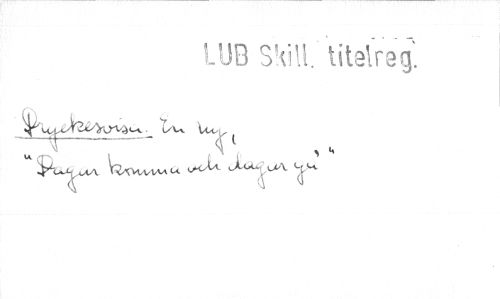 LUB Skill. titelreg.
Dryckesvisa. En ny,
"Dagar komma och dagar gå"